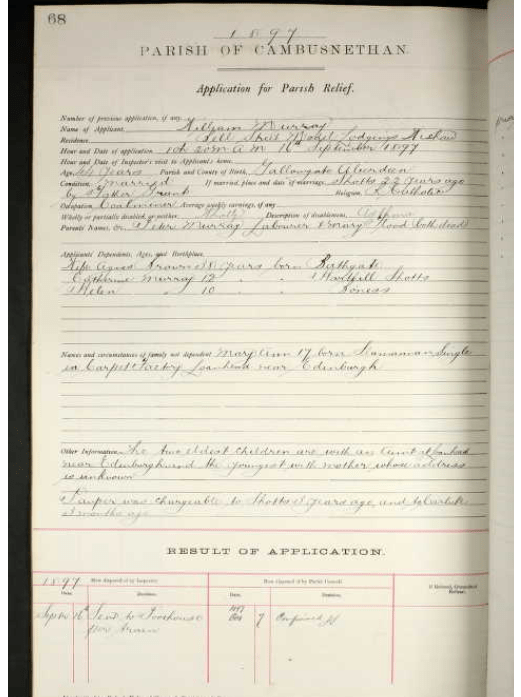 68
1897
PARISH OF CAMBUSNETHAN.
Application for Parish Relief.
Number of previous application, if any
Name of Applicant William Murray
Residence Model Lodgings Wishaw
Hour and Date of application 10h 20m A.M. 16th September 1897
Hour and Date of Inspector's visit to Applicant's home
Age, 44 years Parish and County of Birth, Gallowgate Aberdeen
Condition, Married If married, place and date of marriage, Shotts 22 years ago
by Father Grant Religion, R. Catholic
Occupation Coalminer Average weekly earnings, if any
Wholly or partially disabled, or neither, Wholly Description of disablement, Asthma
Parents Names, or Peter Murray Labourer & Mary Flood both dead
Applicants' Dependents, Ages, and Birthplace,
Wife Agnes Brown 38 years born Bathgate
Catherine Murray 12 " " Shotts
Helen " 10 " Boness
Names and circumstances of family not dependent Mary Ann 17 born Slamannan Single
in Carpet Factory Loanhead near Edinburgh
Other Information, The two eldest children are with an Aunt at Loanhead
near Edinburgh and the youngest with mother whose address
is unknown
Pauper was chargeable to Shotts 3 years ago, and to Carluke
3 months ago
RESULT OF APPLICATION.
1897 How disposed of by Inspector. How disposed of by Parish Council.
Date. Decision. Date. Decision.
Septr 16th Send to Poorhouse 1897 Oct 7 Confirmed